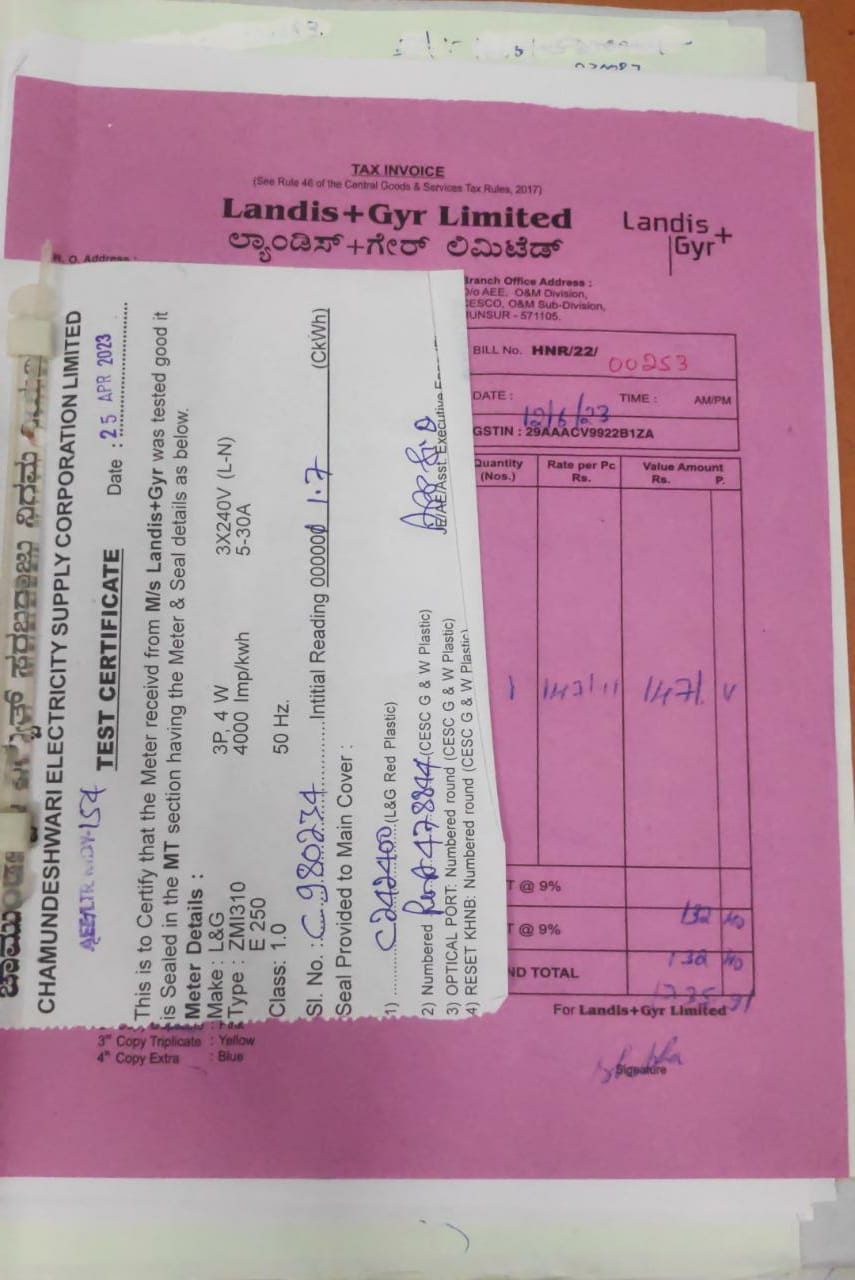 TAX INVOICE
(See Rule 46 of the Central Goods & Services Tax Rules, 2017)
Landis+Gyr Limited
ಲ್ಯಾಂಡಿಸ್+ಗೇರ್ ಲಿಮಿಟೆಡ್
Landis+
Gyr
R. O. Address :
Branch Office Address :
AEE, O&M Division,
CESCO, O&M Sub-Division,
HUNSUR - 571105.
BILL No. HNR/22/ 00253
DATE : 12/6/23 TIME : AM/PM
GSTIN : 29AAACV9922B1ZA
Quantity (Nos.) Rate per Pc Rs. Value Amount Rs. P.
1 1471
@ 9% 132 40
@ 9% 132 40
ND TOTAL 1735 91
For Landis+Gyr Limited
Signature
3rd Copy Triplicate : Yellow
4th Copy Extra : Blue
CHAMUNDESHWARI ELECTRICITY SUPPLY CORPORATION LIMITED
TEST CERTIFICATE Date : 25 APR 2023
This is to Certify that the Meter receivd from M/s Landis+Gyr was tested good it
is Sealed in the MT section having the Meter & Seal details as below.
Meter Details :
Make : L&G 3P, 4 W 3X240V (L-N)
Type : ZMI310 4000 Imp/kwh 5-30A
E 250
Class: 1.0 50 Hz.
Sl. No. : C 980234 Intitial Reading 00000 1.7 (CkWh)
Seal Provided to Main Cover :
1) C242400 (L&G Red Plastic)
2) Numbered (CESC G & W Plastic)
3) OPTICAL PORT: Numbered round (CESC G & W Plastic)
4) RESET KHNB: Numbered round (CESC G & W Plastic)
JE/AE/Asst. Executive